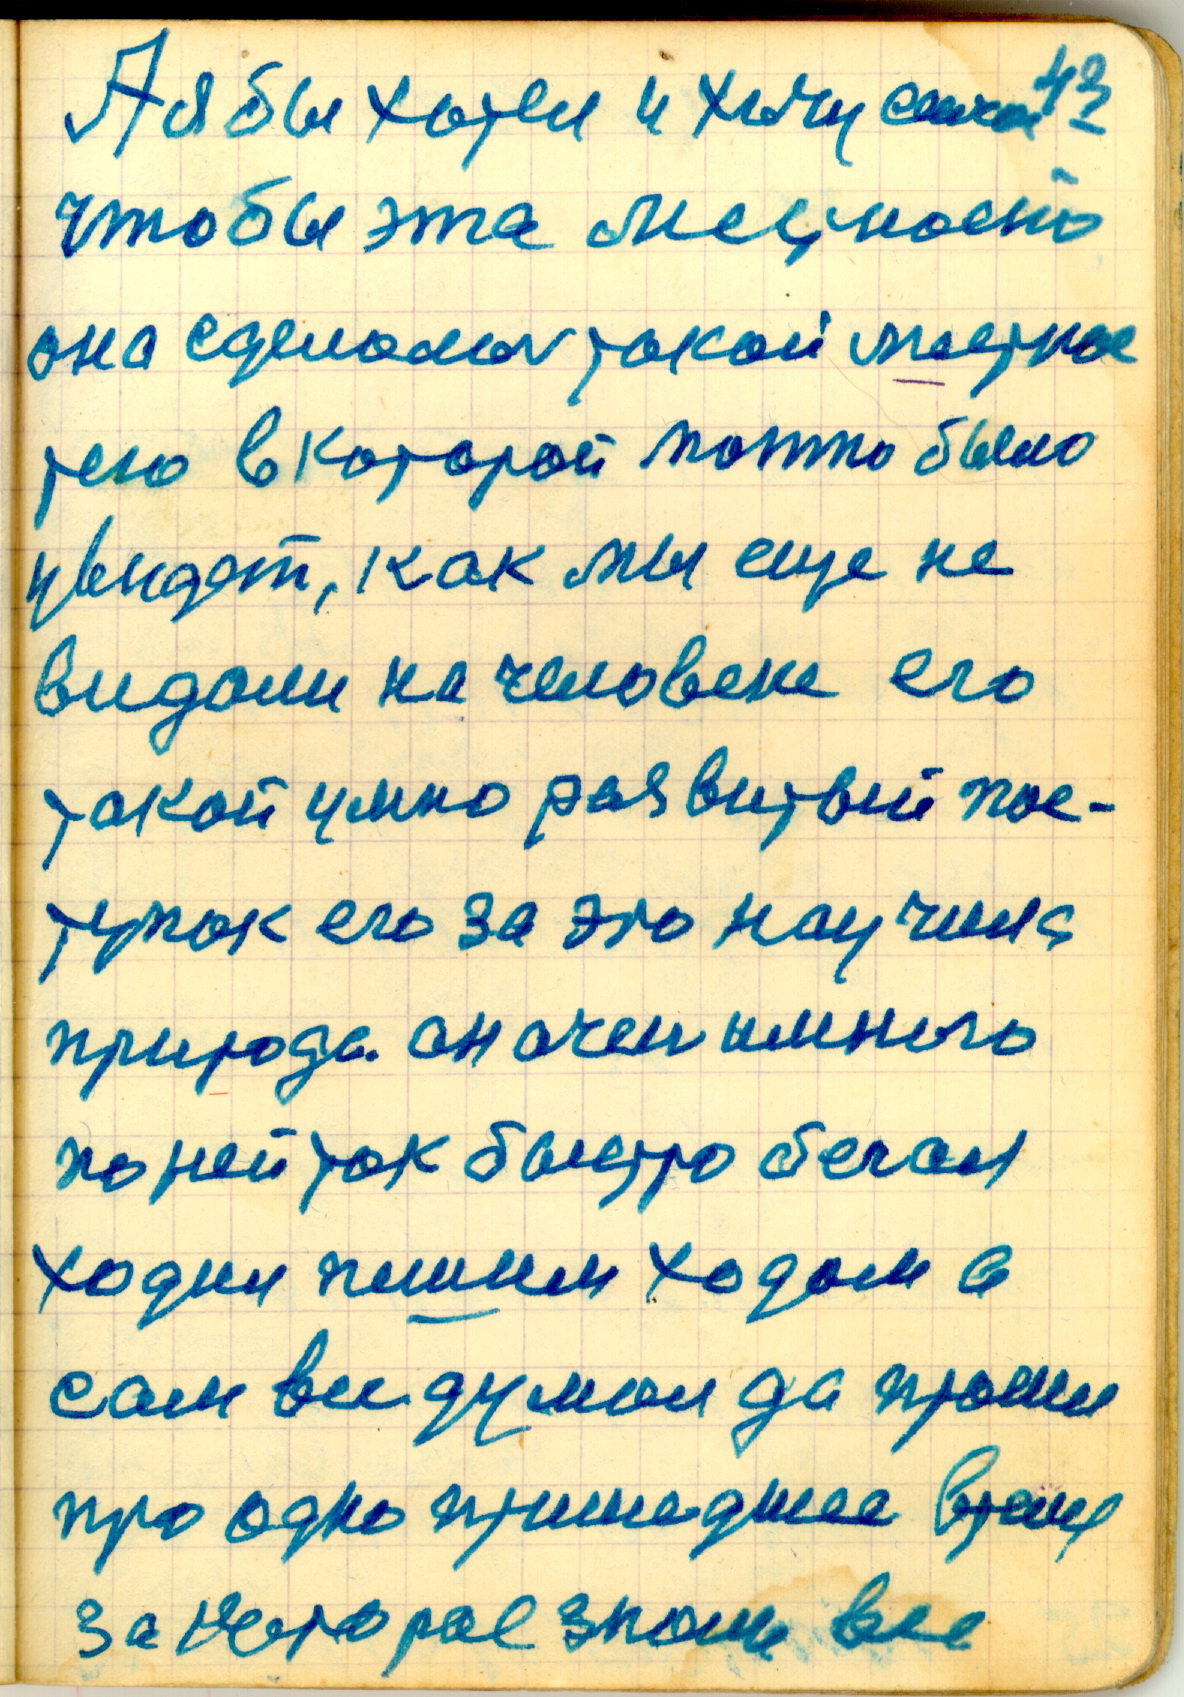 43
А я бы хотел и хочу
чтобы эта месность
она сделалась такой местнос
тею в которой можно было
увидет, как мы еще не
видали на человеке его
такой умно развитый пос-
тупок его за это научила
природа. он очен много
по ней так быстро бегал
ходил пешим ходом а
сам все думал да просил
про одно пришедшее время
за которое знали все